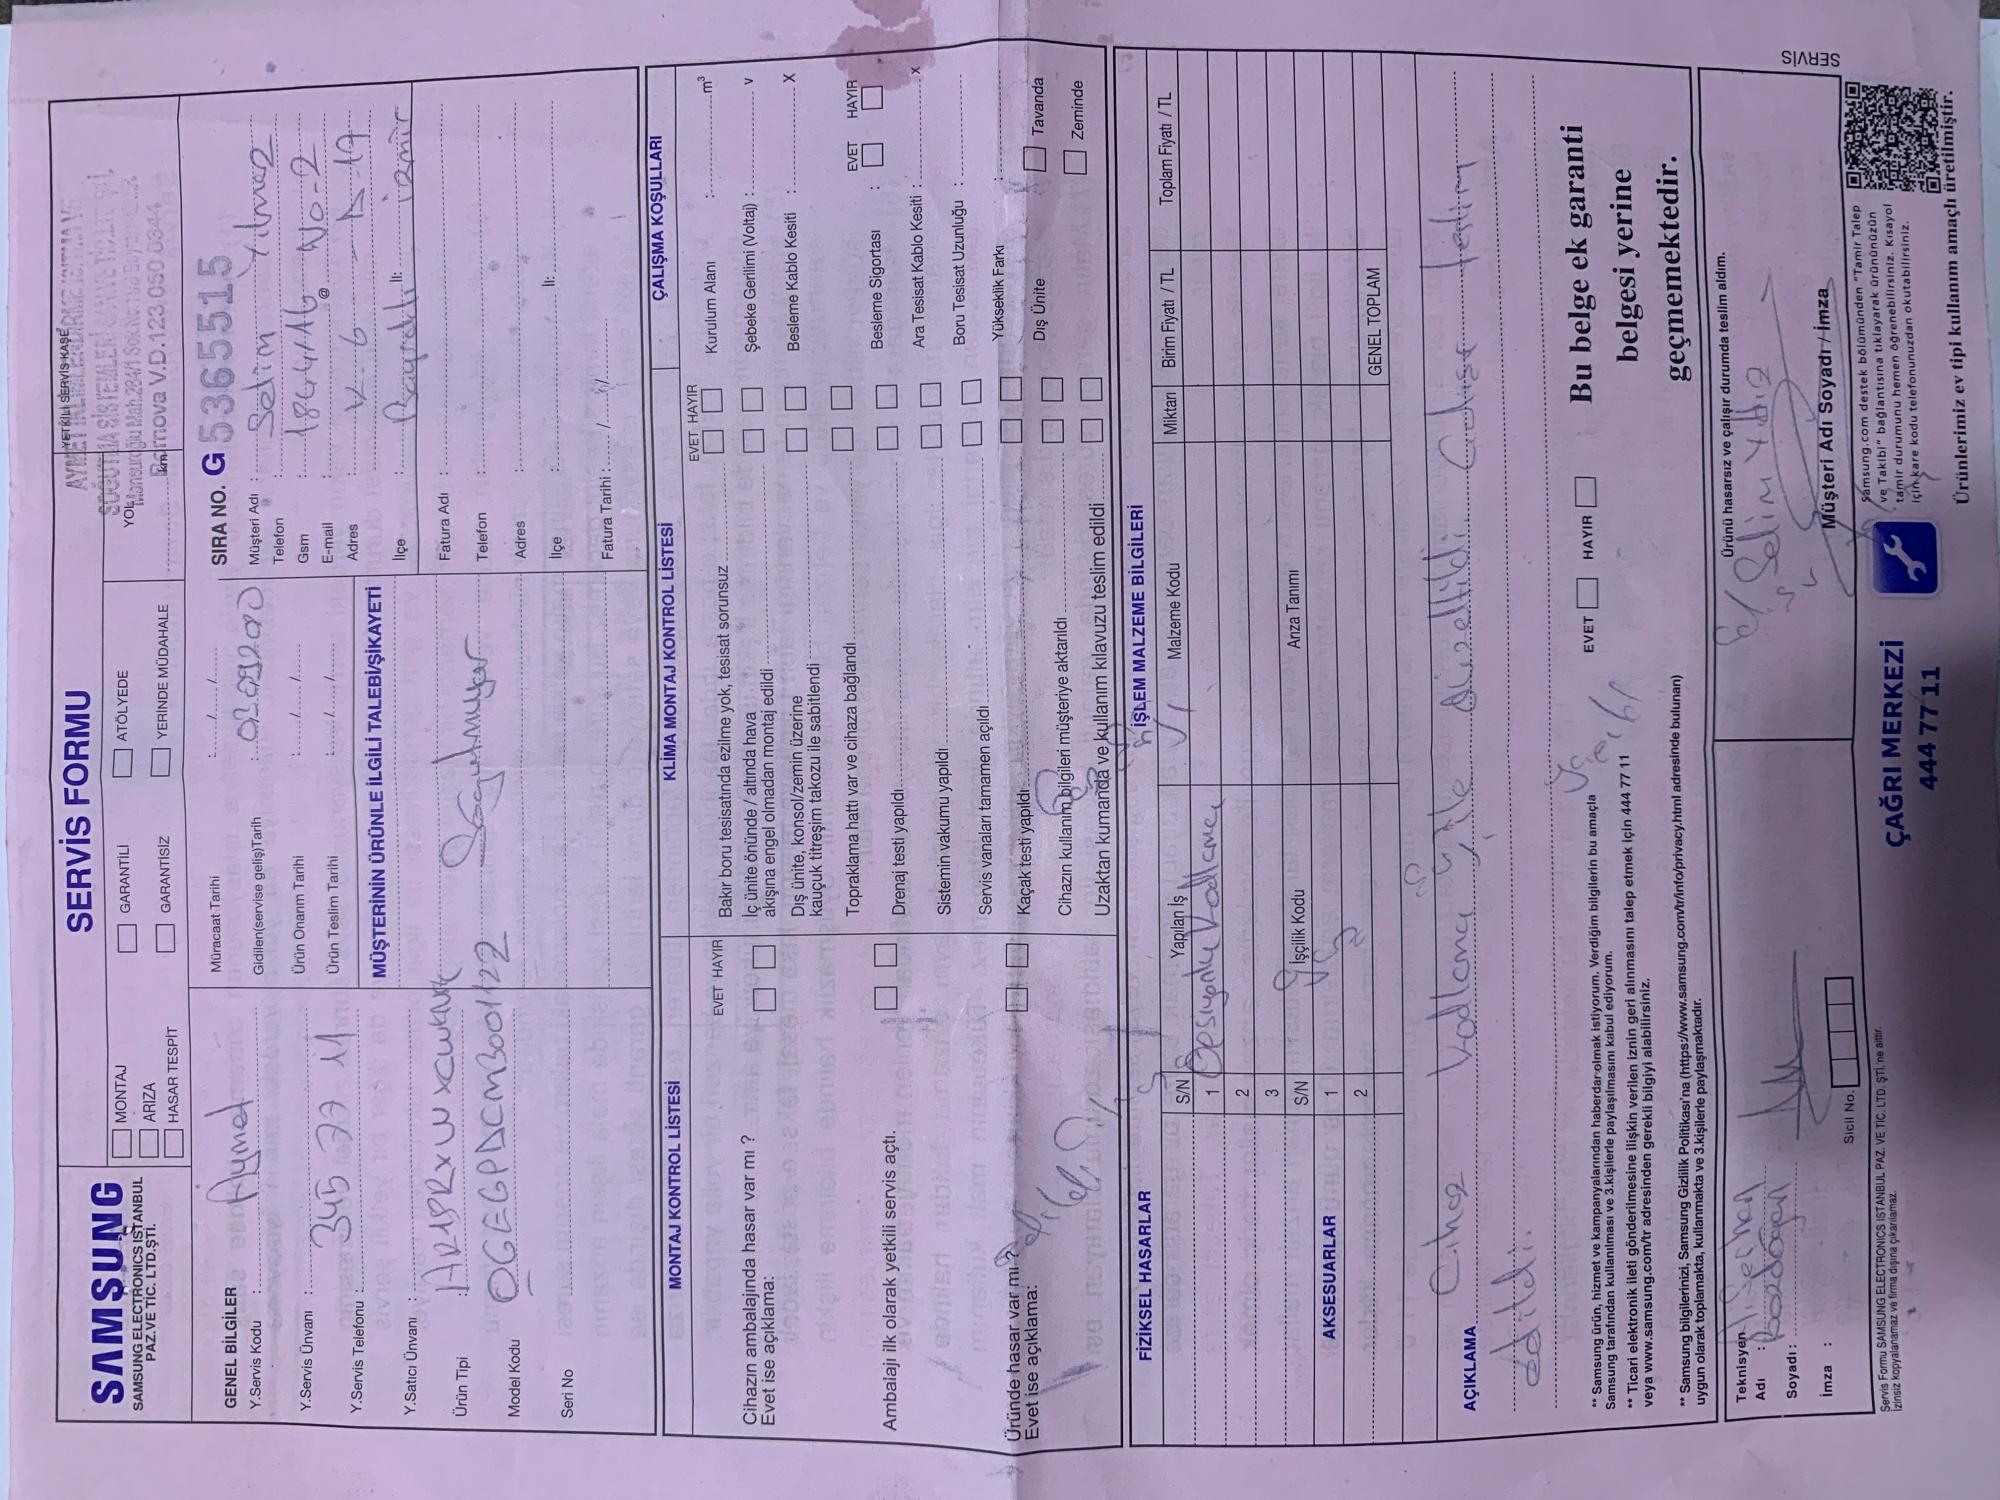 SAMSUNG
SAMSUNG ELECTRONICS İSTANBUL
PAZ.VE TİC. LTD.ŞTİ.
SERVİS FORMU
MONTAJ
ARIZA
HASAR TESPİT
GARANTİLİ
GARANTİSİZ
ATÖLYEDE
YERİNDE MÜDAHALE
YOL
km
YETKİLİ SERVİS KAŞE
Mansuroğlu Mah.284/1 Sok.No:
V.D.123 050 0344
GENEL BİLGİLER
Y.Servis Kodu : Aymet
Y.Servis Ünvanı :
Y.Servis Telefonu : 345 77 11
Y.Satıcı Ünvanı :
Ürün Tipi
Model Kodu
Seri No
Müracaat Tarihi : ..../..../....
Gidilen(servise geliş)Tarih :
Ürün Onarım Tarihi : ..../..../....
Ürün Teslim Tarihi : ..../..../....
MÜŞTERİNİN ÜRÜNLE İLGİLİ TALEBİ/ŞİKAYETİ
Soğutmuyor
SIRA NO. G 5365515
Müşteri Adı : Selim Yılmaz
Telefon : 1864/16 No-2
Gsm :
E-mail : @
Adres : K-6 D-17
İlçe : Bayraklı İli: izmir
Fatura Adı :
Telefon :
Adres :
İlçe : İli:
Fatura Tarihi : ..../..../....
MONTAJ KONTROL LİSTESİ
EVET HAYIR
Cihazın ambalajında hasar var mı ?
Evet ise açıklama:
Ambalajı ilk olarak yetkili servis açtı.
Üründe hasar var mı ?
Evet ise açıklama:
KLİMA MONTAJ KONTROL LİSTESİ
EVET HAYIR
Bakır boru tesisatında ezilme yok, tesisat sorunsuz
İç ünite önünde / altında hava
akışına engel olmadan montaj edildi
Dış ünite, konsol/zemin üzerine
kauçuk titreşim takozu ile sabitlendi
Topraklama hattı var ve cihaza bağlandı
Drenaj testi yapıldı
Sistemin vakumu yapıldı
Servis vanaları tamamen açıldı
Kaçak testi yapıldı
Cihazın kullanım bilgileri müşteriye aktarıldı
Uzaktan kumanda ve kullanım kılavuzu teslim edildi
ÇALIŞMA KOŞULLARI
Kurulum Alanı : m³
Şebeke Gerilimi (Voltaj) : v
Besleme Kablo Kesiti : X
EVET HAYIR
Besleme Sigortası :
Ara Tesisat Kablo Kesiti : x
Boru Tesisat Uzunluğu :
Yükseklik Farkı :
Dış Ünite Tavanda
Zeminde
FİZİKSEL HASARLAR
AKSESUARLAR
İŞLEM MALZEME BİLGİLERİ
S/N Yapılan İş Malzeme Kodu Miktarı Birim Fiyatı / TL Toplam Fiyatı / TL
1 Opsiyonlu Kodlama
2
3
S/N İşçilik Kodu Arıza Tanımı
1
2
GENEL TOPLAM
AÇIKLAMA Cihaz kodlama ile düzeltildi. Çalışır teslim
edildi.
** Samsung ürün, hizmet ve kampanyalarından haberdar olmak istiyorum. Verdiğim bilgilerin bu amaçla
Samsung tarafından kullanılması ve 3.kişilerle paylaşılmasını kabul ediyorum.
EVET HAYIR
** Ticari elektronik ileti gönderilmesine ilişkin verilen iznin geri alınmasını talep etmek için 444 77 11
veya www.samsung.com/tr adresinden gerekli bilgiyi alabilirsiniz.
** Samsung bilgilerinizi, Samsung Gizlilik Politikası'na (https://www.samsung.com/tr/info/privacy.html adresinde bulunan)
uygun olarak toplamakta, kullanmakta ve 3.kişilerle paylaşmaktadır.
Bu belge ek garanti
belgesi yerine
geçmemektedir.
Teknisyen
Adı :
Soyadı :
İmza :
Sicil No.
Ürünü hasarsız ve çalışır durumda teslim aldım.
Selim
Müşteri Adı Soyadı / İmza
Servis Formu SAMSUNG ELECTRONICS İSTANBUL PAZ. VE TİC. LTD. ŞTİ.'ne aittir.
İzinsiz kopyalanamaz ve firma dışına çıkarılamaz.
ÇAĞRI MERKEZİ
444 77 11
Samsung.com destek bölümünden "Tamir Talep
ve Takibi" bağlantısına tıklayarak ürününüzün
tamir durumunu hemen öğrenebilirsiniz. Kısayol
için kare kodu telefonunuzdan okutabilirsiniz.
Ürünlerimiz ev tipi kullanım amaçlı üretilmiştir.
SERVİS